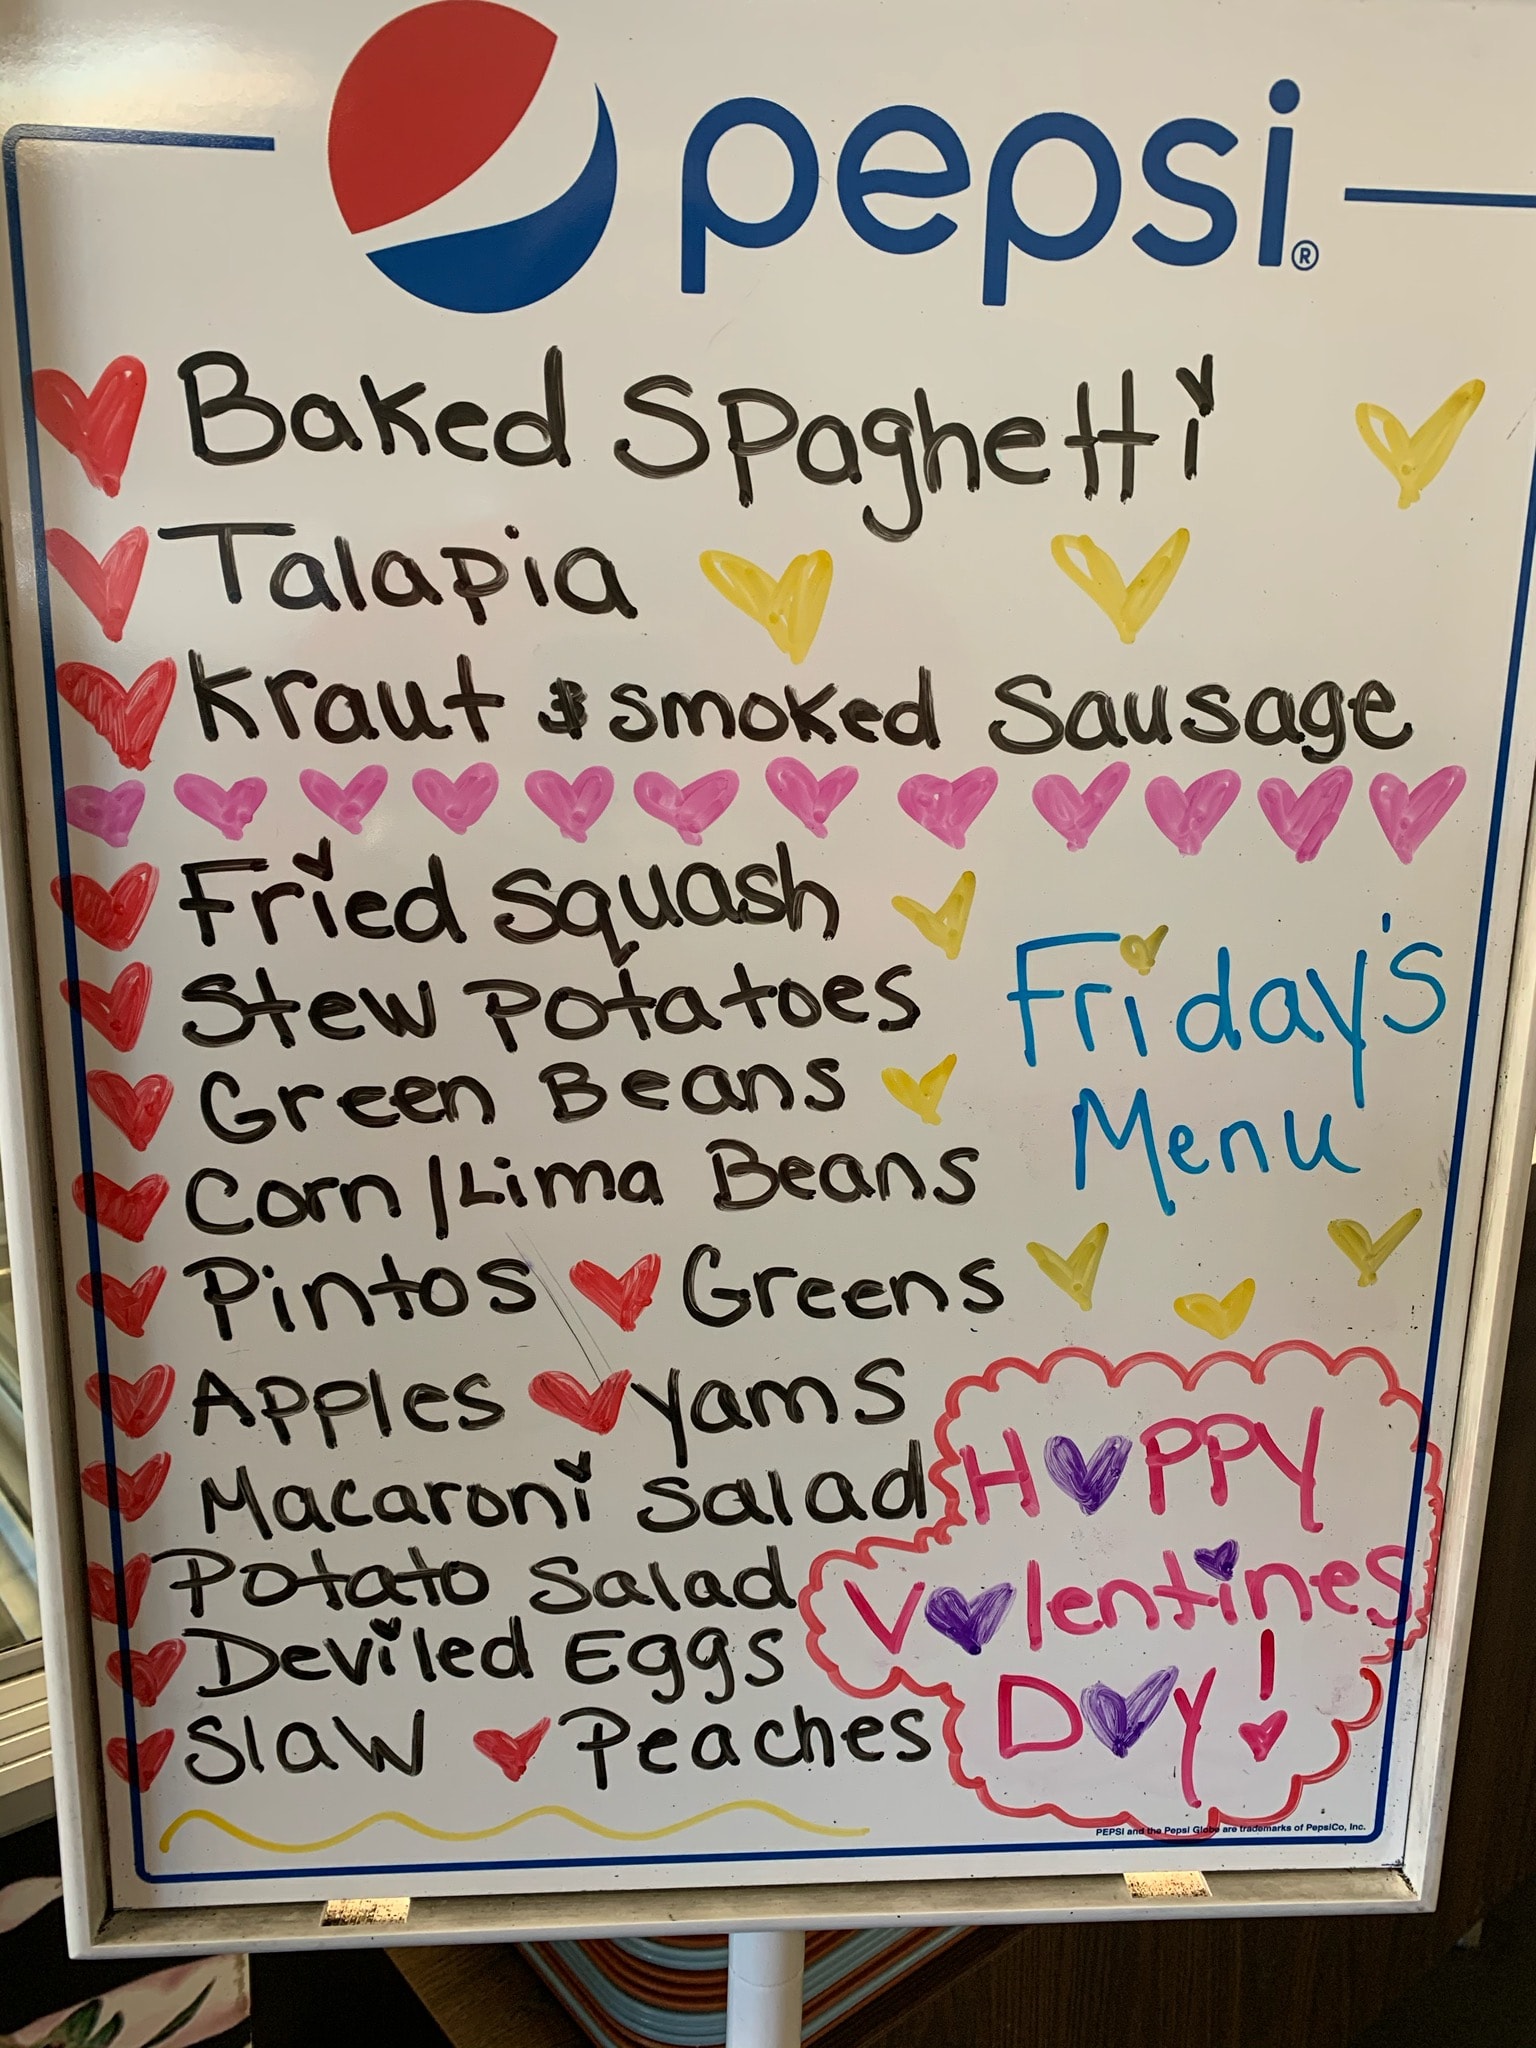 pepsi®
Baked Spaghetti
Talapia
Kraut & Smoked Sausage
Fried Squash
Stew Potatoes
Green Beans
Corn/Lima Beans
Pintos Greens
Apples Yams
Macaroni Salad
Potato Salad
Deviled Eggs
Slaw Peaches
Friday's
Menu
Happy
Valentines
Day!
PEPSI and the Pepsi Globe are trademarks of PepsiCo, Inc.